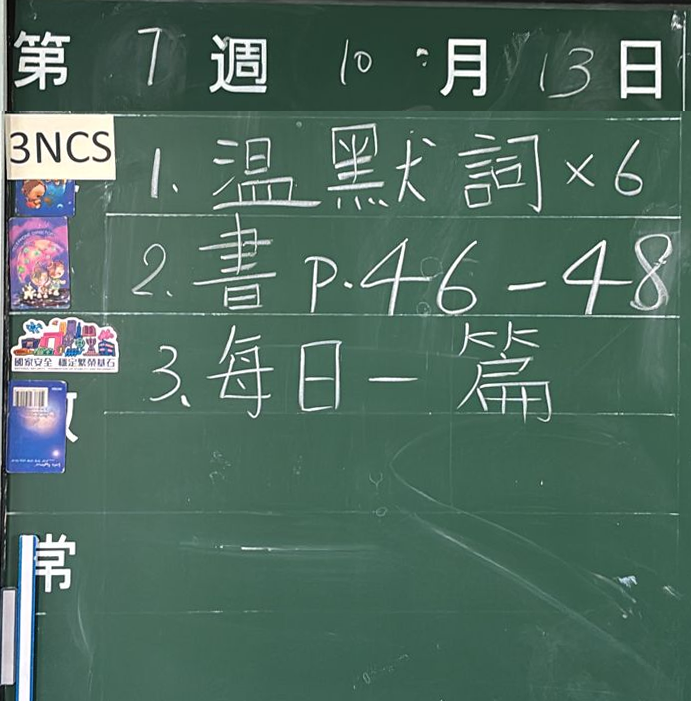 第 7 週 10 月 13 日
3NCS
1. 溫默詞×6
2. 書 P.46-48
國家安全 穩定繁榮基石
3. 每日一篇
常